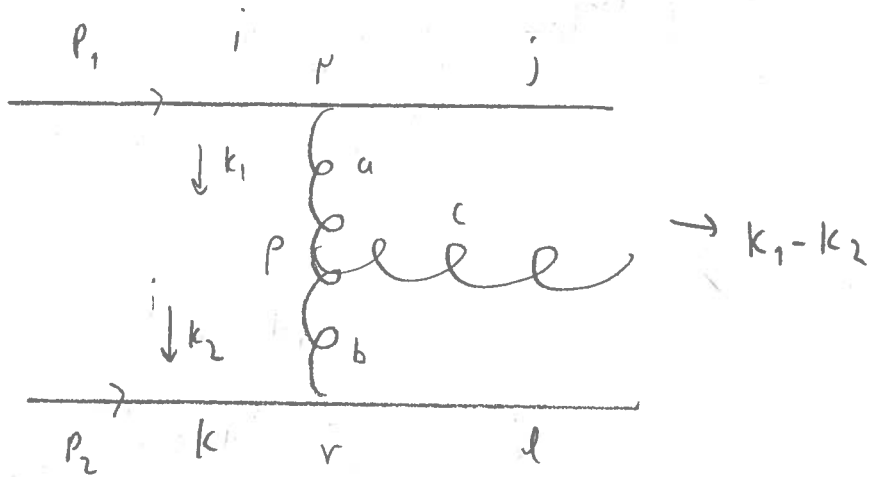 p₁ i μ j
↓ k₁ a
ρ c → k₁-k₂
i
↓ k₂ b
p₂ k ν l